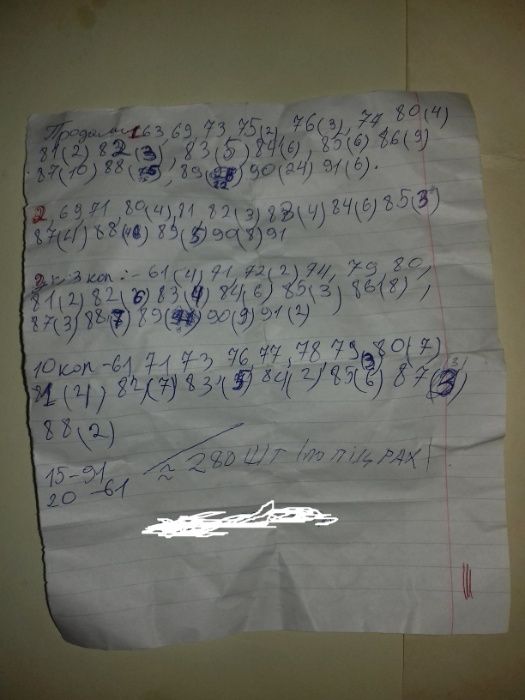 Продам 1 63, 69, 73, 75(2), 76(3), 77, 80(4)
81(2) 82(3), 83(5) 84(6), 85(6) 86(9)
87(10) 88(15), 89( 90(24) 91(6).
2, 69, 71, 80(4), 81, 82(3) 83(4) 84(6) 85(3)
87(4) 88( 89(5) 90(8) 91
3 коп:- 61(4) 71, 72(2) 74, 79 80,
81(2) 82(6) 83(4) 84(6) 85(3) 86(8),
87(3) 88(7) 89( 90(9) 91(2)
10 коп -61, 71, 73 76, 77, 78 79, 80(7)
81(4) 82(7) 83(5) 84(2) 85(6) 87(3)
88(2)
15-91
20-61
≈ 280 ШТ